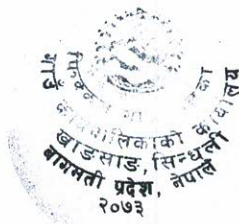 गाउँ कार्यपालिकाको कार्यालय
खाङसाङ, सिन्धुली
बागमती प्रदेश, नेपाल
२०७३